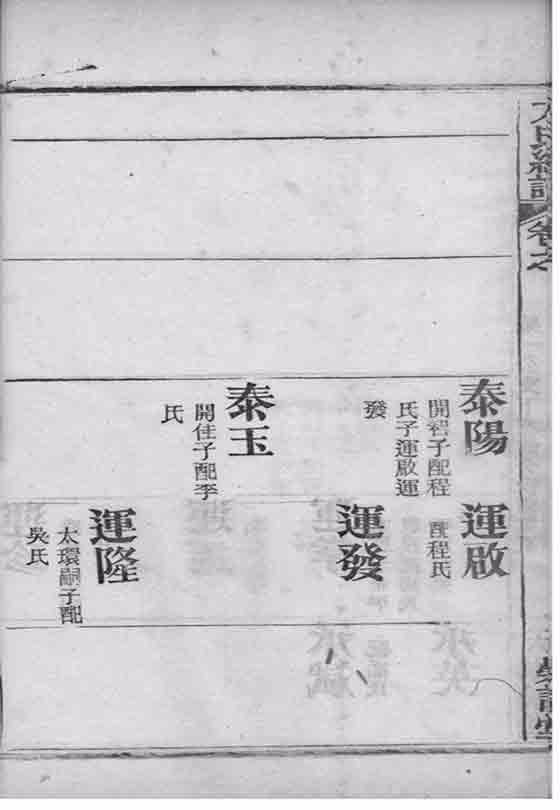 卷之
泰陽
開智子配程
氏子運啟運
發
運啟
配程氏
運發
泰玉
開住子配李
氏
運隆
太環嗣子配
吳氏